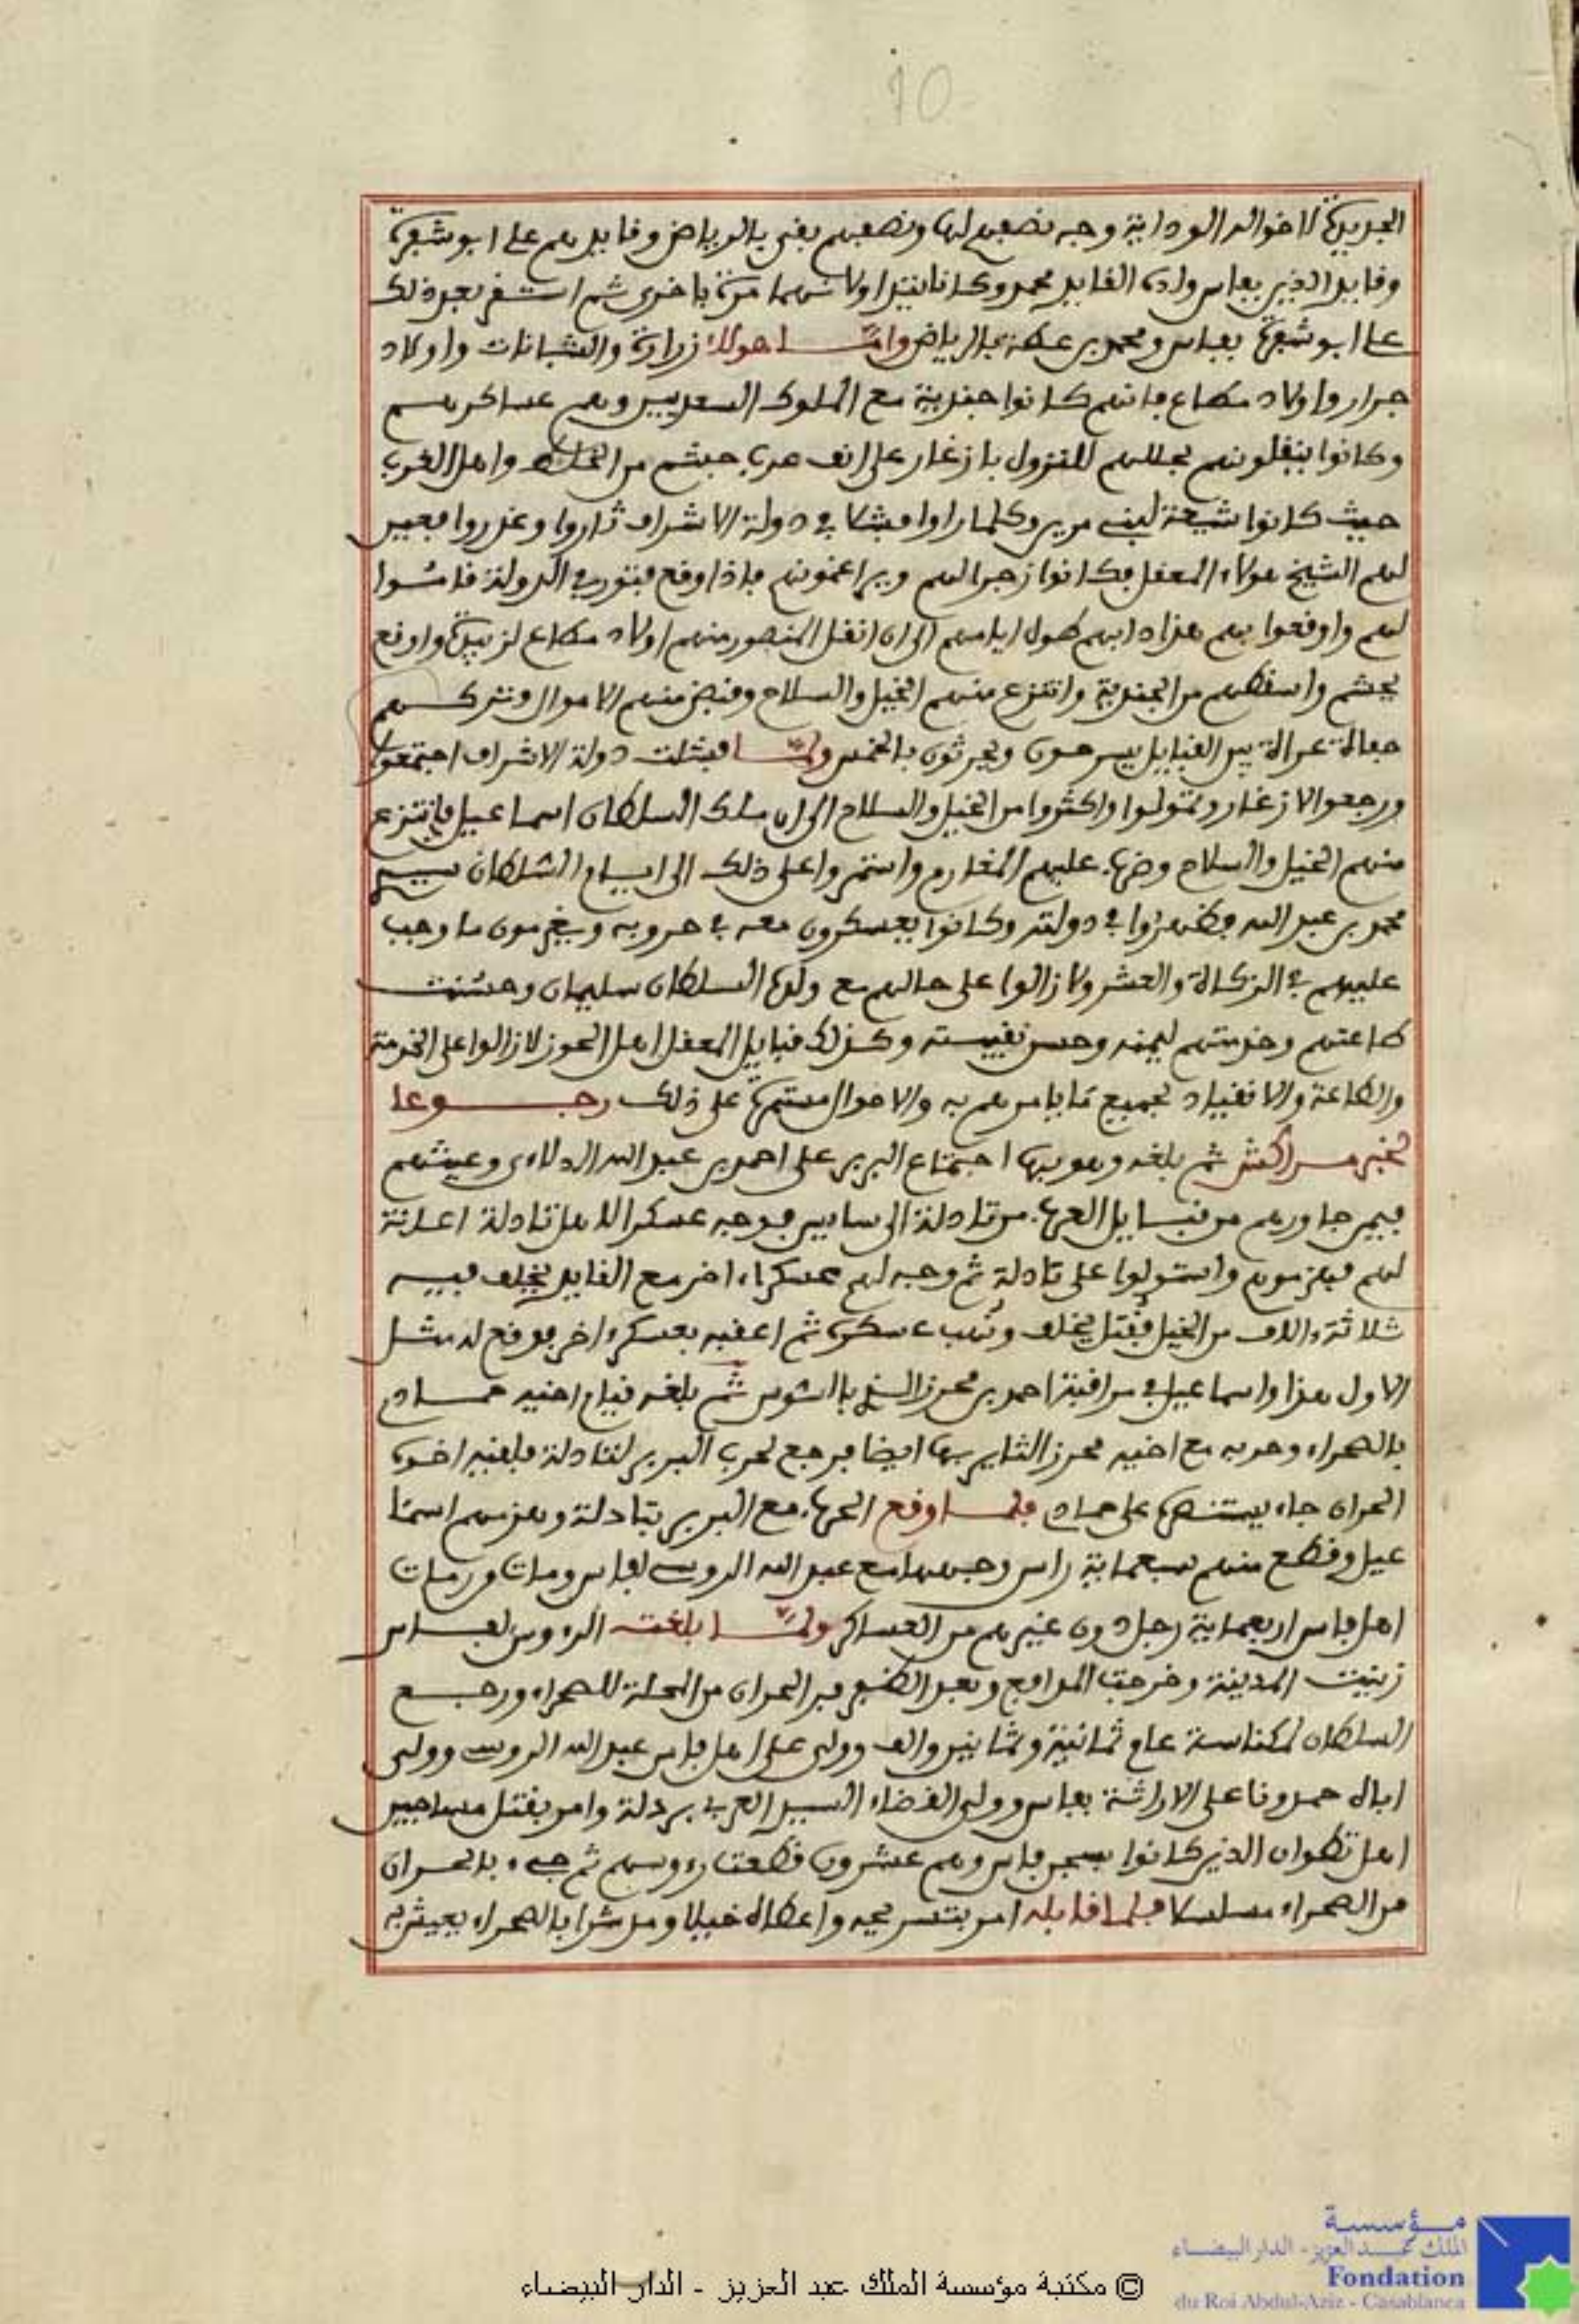 10
الجديدة لاخواله الوداية وجه نصفهم لها ونصفهم بقى بالرياض وقايدهم على ابو شفرة
وقايد الذين بفاس ولده القايد محمد وكانا يتداولانهما مرة باخرى ثم استقر بعد ذلك
على ابو شفرة بفاس ومحمد بن عطية بالرياض واما هولاء زرارة والشبانات واولاد
جرار واولاد مطاع فانهم كانوا جندية مع الملوك السعديين وهم عساكرهم
وكانوا ينقلونهم بحللهم للنزول بازغار على انف عرب جشم من الخلط واهل الغرب
حيث كانوا شيعة لبني مرين وكلما راوا فشلا في دولة الاشراف ثاروا وغدروا فعين
لهم الشيخ هولاء المعقل فكانوا زجرا لهم ويراعونهم فاذا وقع فتور في الدولة قاموا
لهم واوقعوا بهم هذا دابهم طول ايامهم الى ان انقل المنصور منهم اولاد مطاع لزبيدة واوقع
بجشم واسقطهم من الجندية وانتزع منهم الخيل والسلاح وقبض منهم الاموال وتركهم
حمالة عزالة بين القبايل يسرحون ويحرثون بالخمس ولما فشلت دولة الاشراف اجتمعوا
ورجعوا لازغار وتمولوا واكثروا من الخيل والسلاح الى ان ملك السلطان اسماعيل فانتزع
منهم الخيل والسلاح وضرب عليهم المغارم واستمروا على ذلك الى ايام السلطان سيدي
محمد بن عبد الله فظهروا في دولته وكانوا يعسكرون معه في حروبه ويغرمون ما وجب
عليهم في الزكاة والعشر ولا زالوا على حالهم مع ولده السلطان سليمان وحسنت
طاعتهم وخدمتهم ليمنه وحسن نقيبته وكذلك قبايل المعقل اهل الحوز لازالوا على الخدمة
والطاعة والانقياد لجميع ما يامرهم به والاحوال مستمرة على ذلك رجوعا
لخبر مراكش ثم بلغه وهو بها اجتماع البربر على احمد بن عبد الله الدلاءي وعيثهم
فيمن جاورهم من قبايل العرب من تادلة الى سايس فوجه عسكرا لاهل تادلة اعانة
لهم فهزموهم واستولوا على تادلة ثم وجه لهم عسكرا اخر مع القايد يخلف فيه
ثلاثة ءالاف من الخيل فقتل يخلف ونهب عسكره ثم اعقبه بعسكر اخر فوقع له مثل
الاول هذا واسماعيل في مراقبة احمد بن محرز الذي بالسوس ثم بلغه قيام اخيه حماد
بالصحراء وحربه مع اخيه محرز الثاير بها ايضا فرجع لحرب البربر لتادلة فلقيه اخوه
الحران جاء يستنصره على حماد فلما وقع الحرب مع البربر بتادلة وهزمهم اسما
عيل وقطع منهم سبعماية راس وجهها مع عبد الله الروسي لفاس ومات من رمات
اهل فاس اربعماية رجل دون غيرهم من العساكر ولما بلغت الرءوس لفاس
زينت المدينة وخرجت المدافع وبعد الظفر فر الحران من المحلة للصحراء ورجع
السلطان لمكناسة عام ثمانية وثمانين والف وولى على اهل فاس عبد الله الروسي وولى
اباه حمدونا على الاراثة بفاس وولى القضاء السيد العربي بردلة وامر بقتل مساجين
اهل تطوان الذين كانوا بسجن فاس وهم عشرون فقطعت رءوسهم ثم جيء بالحران
من الصحراء مسلسلا فلما قابله امر بتسريحه واعطاه خيلا ومدشرا بالصحراء يعيش به
© مكتبة مؤسسة الملك عبد العزيز - الدار البيضاء
مؤسسة
الملك عبد العزيز - الدار البيضاء
Fondation
du Roi Abdul-Aziz - Casablanca